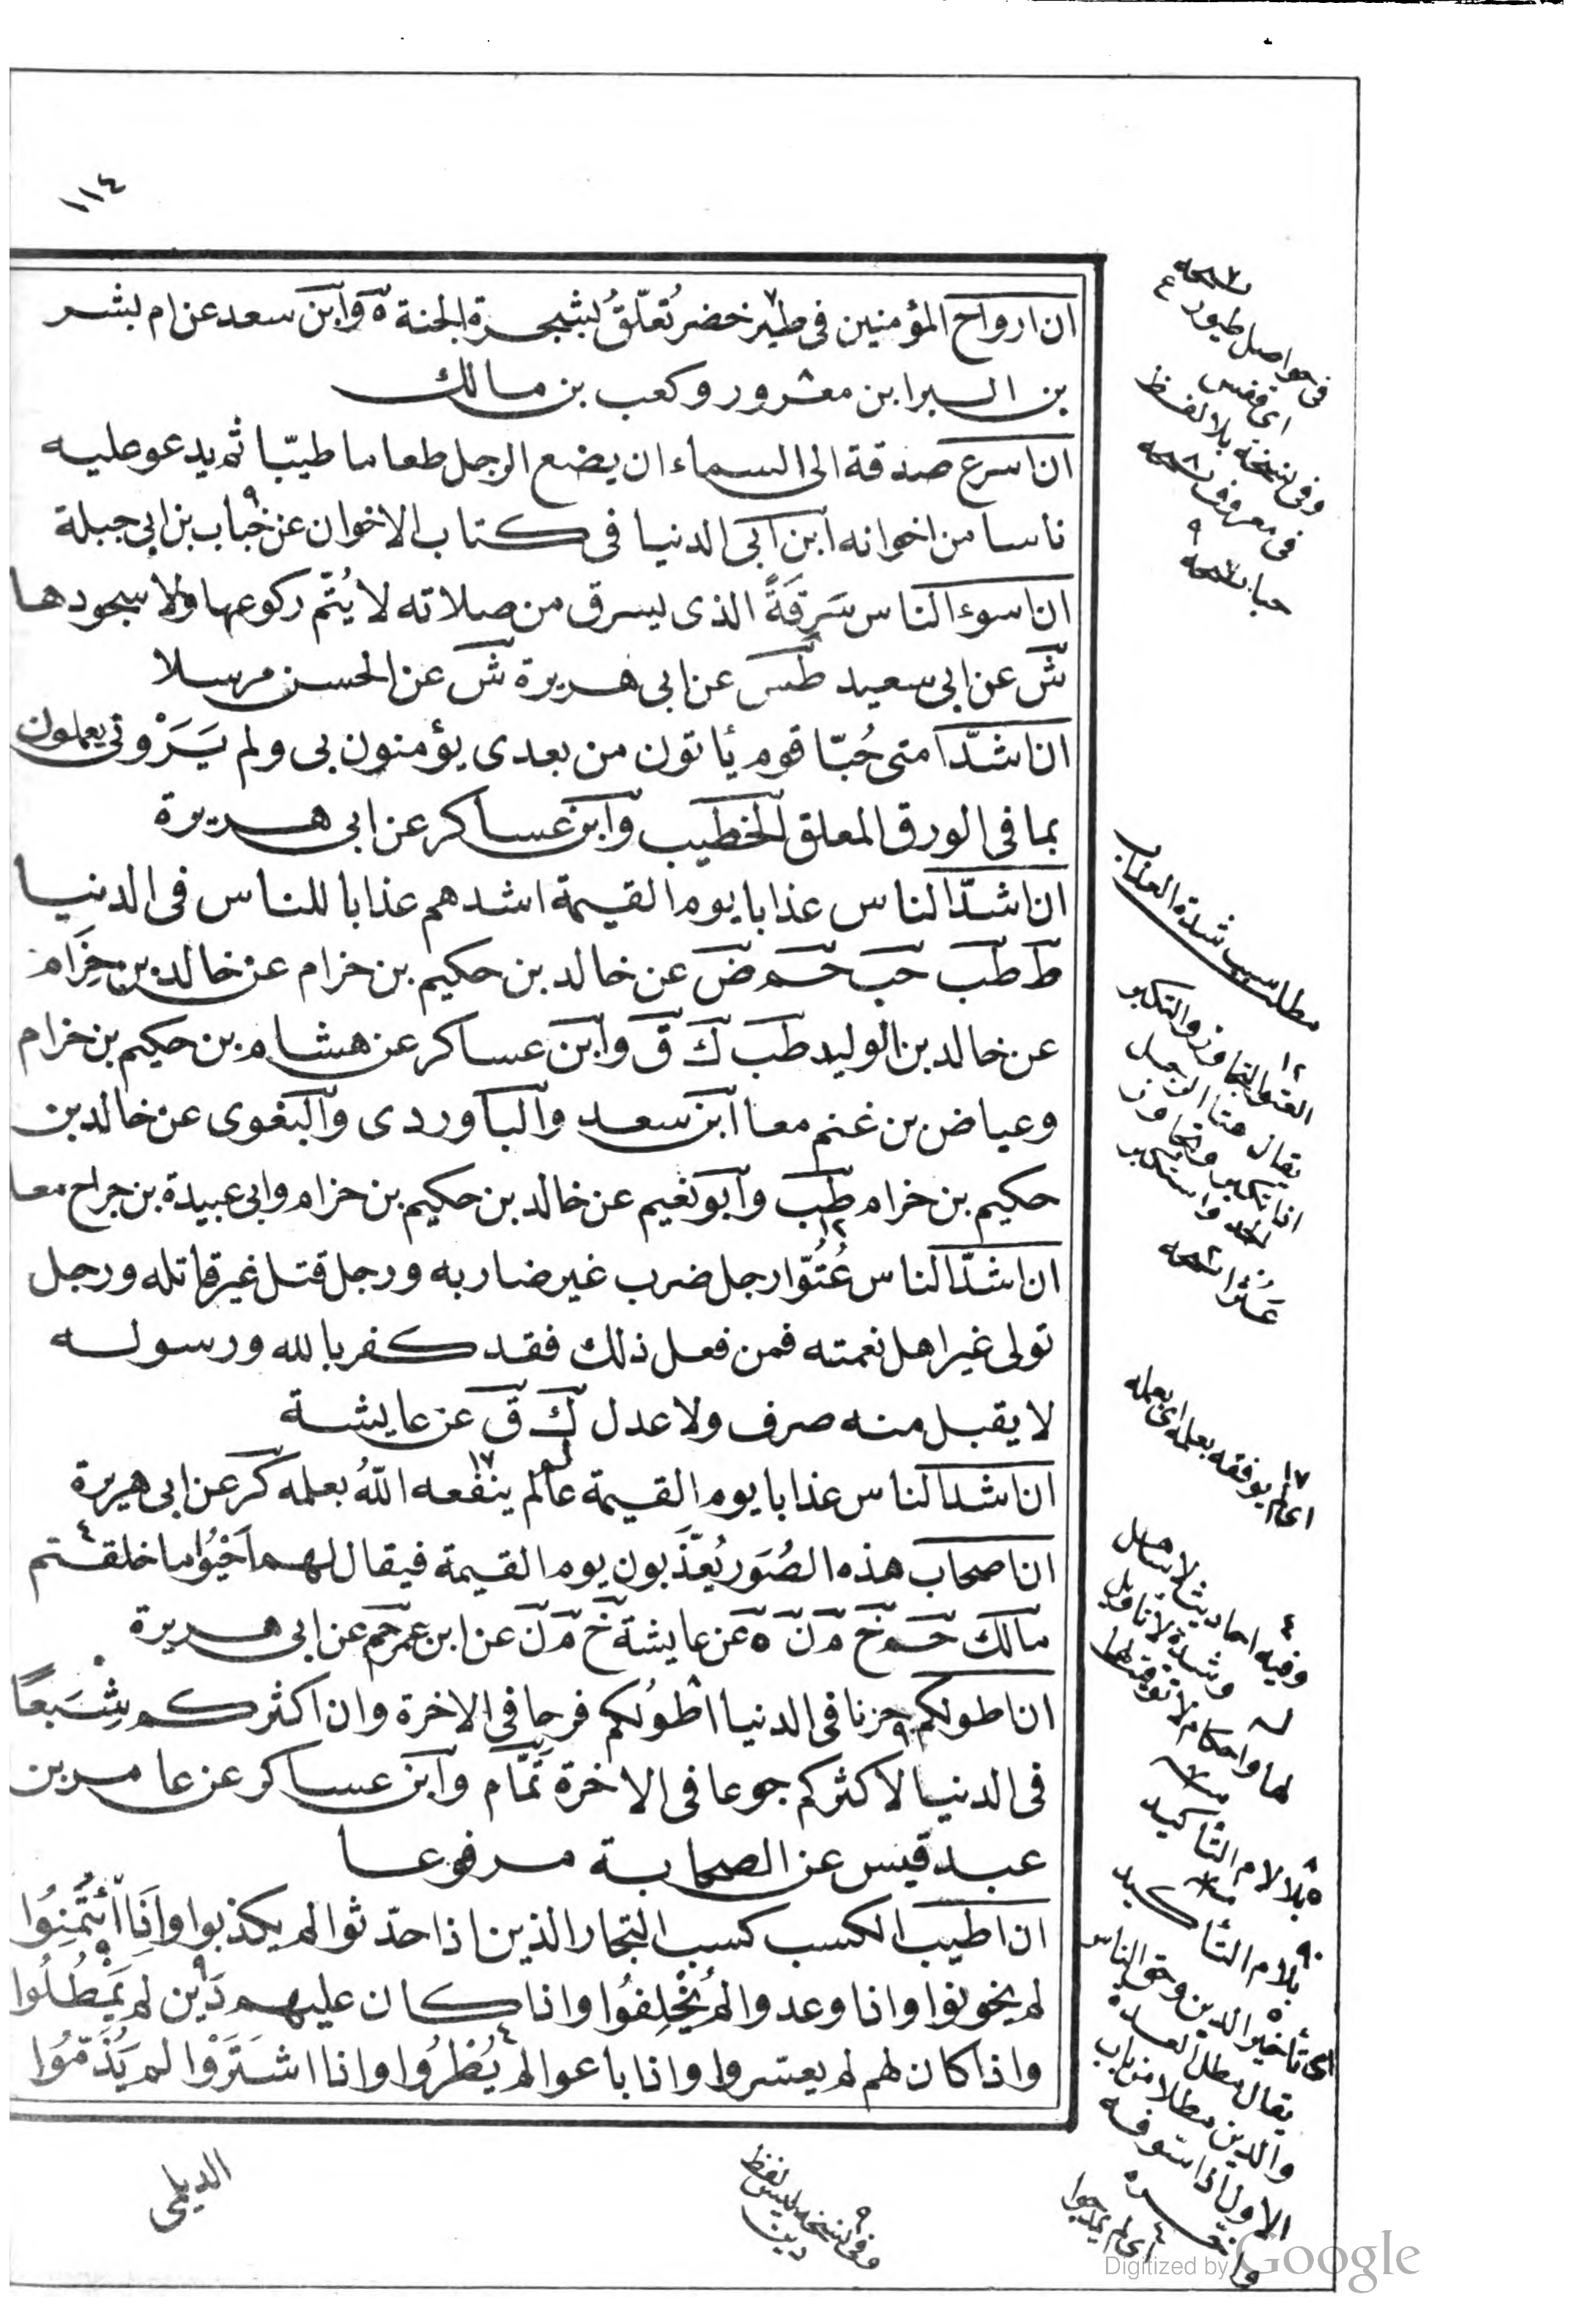 ١١٤
ان ارواح المؤمنين فى طير خضر تُعلّقُ بشجرة الجنة ه وابن سعد عن ام بشر
بن البرا ابن معرور وكعب بن مالك
ان اسرع صدقة الى السماء ان يضع الرجل طعاما طيّبا ثم يدعو عليه
ناسا من اخوانه ابن ابى الدنيا فى كتاب الاخوان عن خباب بن ابى جبلة
ان اسوء الناس سَرِقَةً الذى يسرق من صلاته لا يُتّم ركوعها ولا سجودها
ش عن ابى سعيد طس عن ابى هريرة ش عن الحسن مرسلا
ان اشدّ امتى حُبّا قوم يأتون من بعدى يؤمنون بى ولم يَرَوْنى يعملون
بما فى الورق المعلق الخطيب وابن عساكر عن ابى هريرة
ان اشدّ الناس عذابا يوم القيمة اشدهم عذابا للناس فى الدنيا
ط طب حب حم ض عن خالد بن حكيم بن خزام عن خالد بن حِزَام
عن خالد بن الوليد طب ك ق وابن عساكر عن هشام بن حكيم بن خزام
وعياض بن غنم معا ابن سعد والباوردى والبغوى عن خالد بن
حكيم بن خزام طب وابو نعيم عن خالد بن حكيم بن حزام وابى عبيدة بن جراح معا
ان اشدّ الناس عُتُوّا رجل ضرب غير ضاربه ورجل قتل غير قاتله ورجل
تولى غير اهل نعمته فمن فعل ذلك فقد كفر بالله ورسوله
لا يقبل منه صرف ولا عدل ك ق عن عايشة
ان اشد الناس عذابا يوم القيمة عالم لم ينفعه اللّهُ بعلمه كر عن ابى هريرة
ان اصحاب هذه الصُوَر يُعَذَّبون يوم القيمة فيقال لهم اَحْيُوا ما خلقتم
مالك حم خ م ن ه عن عايشة خ م ن عن ابن عمر حم عن ابى هريرة
ان اطولكم حزنا فى الدنيا اطْوَلُكم فرحا فى الاخرة وان اكثركم شِبَعًا
فى الدنيا لاكثركم جوعا فى الاخرة تمّام وابن عساكر عن عامر بن
عبد قيس عن الصحابة مرفوعا
ان اطيب الكسب كسب التجار الذين اذا حدّثوا لم يكذبوا واِذَا ائْتُمِنُوا
لم يخونوا واذا وعدوا لم يُخْلِفُوا واذا كان عليهم دَيْن لم يَمْطُلُوا
واذا كان لهم لم يعسروا واذا باعوا لم يُطْرُوا واذا اشتَرَوْا لم يَذُمّوُا
الديلمى
فى حواصل طيور
اى قفس
وفى نسخة بلا لفظ
فى معروف نسخه
مطلب شدة العذاب
١٢
العتو التجاوز والتكبر
يقال عتا الرجل
اذا تكبر وتجاوز
واستكبر
عَتُوا نسخه
١٧
اى لم يوفقه بعلمه اى بعمله
٤
وفيه احاديث
بلا لام التأكيد
بلام التأكيد
اى تأخير الدين وحق الناس
يقال مطل العدة
والدين مطلا من باب
الاول اذا سوفه
واخره
وفى نسخه ليس لفظ
دين
اى لم يمدحوا
Digitized by Google